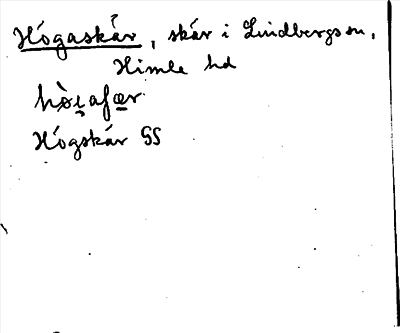 Högaskär, skär i Lindbergs sn,
Himle hd
Högskär GS